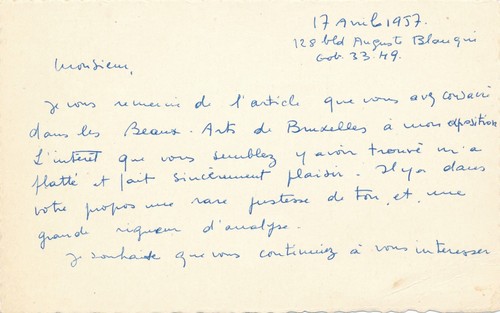 17 Avril 1957.
128 bld Auguste Blanqui
Gob. 33.49.
Monsieur,
Je vous remercie de l'article que vous avez consacré
dans les Beaux-Arts de Bruxelles à mon exposition
L'intérêt que vous semblez y avoir trouvé m'a
flatté et fait sincèrement plaisir. Il y a dans
votre propos une rare justesse de ton, et une
grande rigueur d'analyse.
Je souhaite que vous continuiez à vous intéresser